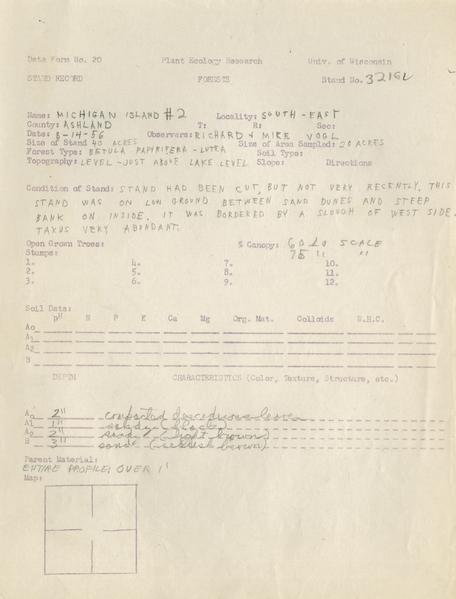 Data Form No. 20 Plant Ecology Research Univ. of Wisconsin
STAND RECORD FORESTS Stand No.
Name: MICHIGAN ISLAND #2 Locality: SOUTH-EAST
County: ASHLAND T: R: Sec:
Date: 8-14-56 Observers: RICHARD & MIKE VOGL
Size of Stand 40 ACRES Size of Area Sampled: 20 ACRES
Forest Type: BETULA PAPYRIFERA - LUTEA Soil Type:
Topography: LEVEL - JUST ABOVE LAKE LEVEL Slope: Directions
Condition of Stand: STAND HAD BEEN CUT, BUT NOT VERY RECENTLY, THIS
STAND WAS ON LOW GROUND BETWEEN SAND DUNES AND STEEP
BANK ON INSIDE. IT WAS BORDERED BY A SLOUGH OF WEST SIDE.
TAXUS VERY ABUNDANT.
Open Grown Trees: % Canopy: 60 20 SCALE
Stumps: 75 " "
1. 4. 7. 10.
2. 5. 8. 11.
3. 6. 9. 12.
Soil Data:
pH N P K Ca Mg Org. Mat. Colloids W.H.C.
Ao
A1
A2
B
DEPTH CHARACTERISTICS (Color, Texture, Structure, etc.)
Ao 2" compacted deciduous leaves
A1 1" sandy (black)
A2 2" sand (light brown)
B 3" sand (reddish brown)
Parent Material:
ENTIRE PROFILE: OVER 1'
Map: